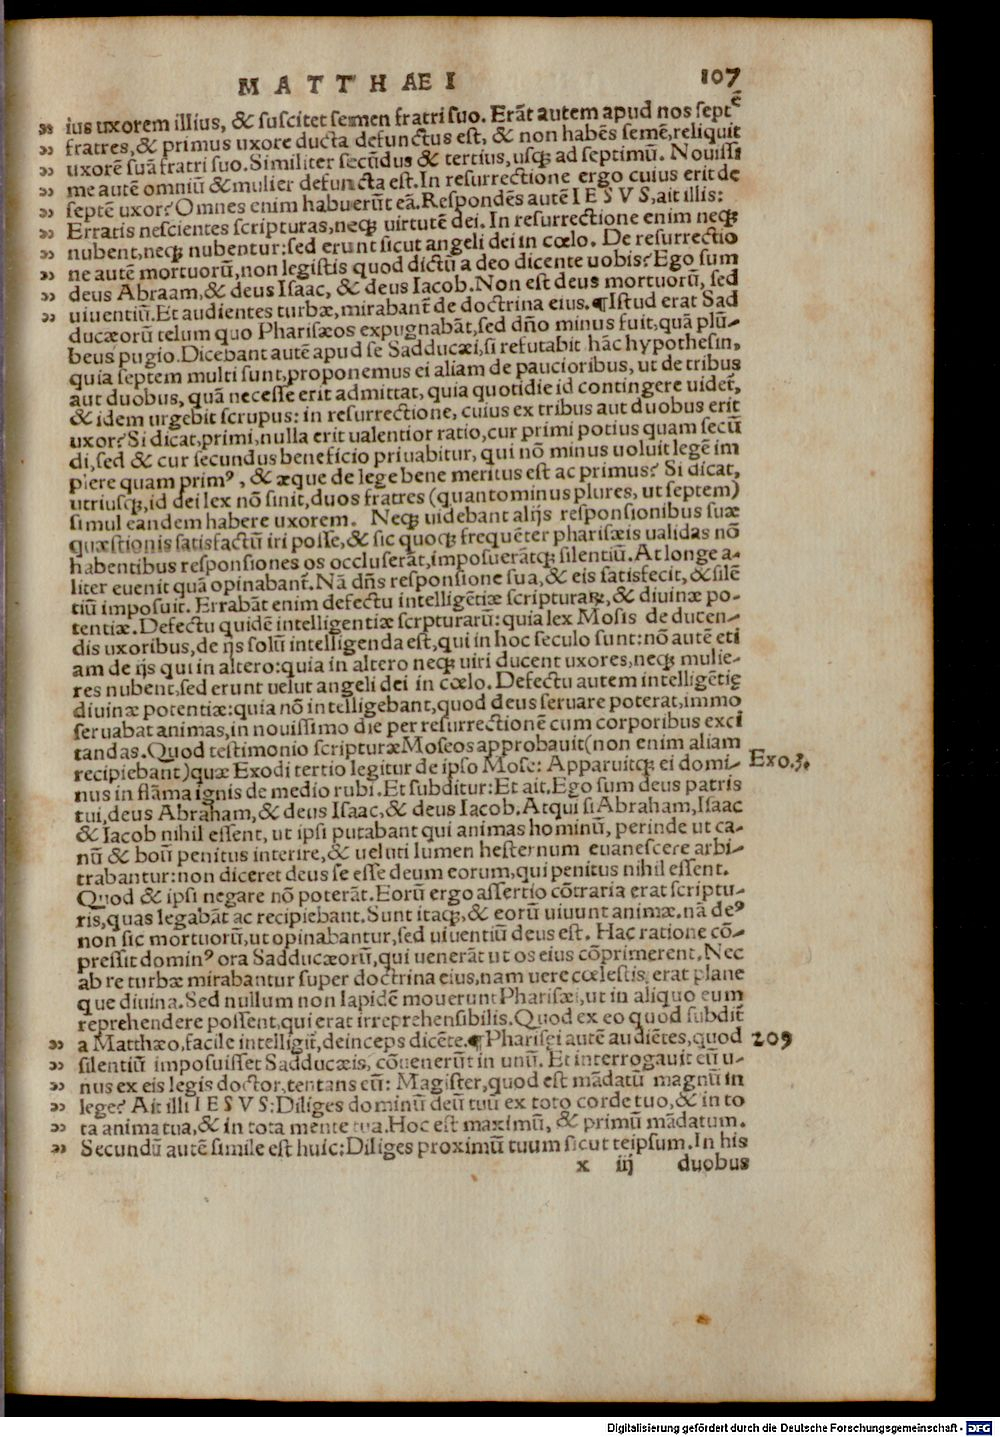 MATTHAEI 107
„ ius uxorem illius, & suscitet semen fratri suo. Erāt autem apud nos septē
„ fratres, & primus uxore ducta defunctus est, & non habēs semē, reliquit
„ uxorē suā fratri suo. Similiter secūdus & tertius, usq; ad septimū. Nouissi
„ me autē omniū & mulier defuncta est. In resurrectione ergo cuius erit de
„ septē uxor? Omnes enim habuerūt eā. Respondēs autē IESVS, ait illis:
„ Erratis nescientes scripturas, neq; uirtutē dei. In resurrectione enim neq;
„ nubent, neq; nubentur: sed erunt sicut angeli dei in cœlo. De resurrectio
„ ne autē mortuorū, non legistis quod dictū a deo dicente uobis? Ego sum
„ deus Abraam, & deus Isaac, & deus Iacob. Non est deus mortuorū, sed
„ uiuentiū. Et audientes turbæ, mirabant̃ de doctrina eius. ¶ Istud erat Sad
ducæorū telum quo Pharisæos expugnabāt, sed dño minus fuit, quā plū-
beus pugio. Dicebant autē apud se Sadducæi, si refutabit hāc hypothesin,
quia septem multi sunt, proponemus ei aliam de paucioribus, ut de tribus
aut duobus, quā necesse erit admittat, quia quotidie id contingere uidet̃,
& idem urgebit scrupus: in resurrectione, cuius ex tribus aut duobus erit
uxor? Si dicat, primi, nulla erit ualentior ratio, cur primi potius quam secū
di, sed & cur secundus beneficio priuabitur, qui nō minus uoluit legē im
plere quam primꝰ, & æque de lege bene meritus est ac primus? Si dicat,
utriusq;, id dei lex nō sinit, duos fratres (quanto minus plures, ut septem)
simul eandem habere uxorem. Neq; uidebant alijs responsionibus suæ
quæstionis satisfactū iri posse, & sic quoq; frequēter pharisæis ualidas nō
habentibus responsiones os occluserāt, imposuerātq; silentiū. At longe a-
liter euenit quā opinabant̃. Nā dñs responsione sua, & eis satisfecit, & silē
tiū imposuit. Errabāt enim defectu intelligētiæ scripturaꝝ, & diuinæ po-
tentiæ. Defectu quidē intelligentiæ scrpturarū: quia lex Mosis de ducen-
dis uxoribus, de ijs solū intelligenda est, qui in hoc seculo sunt: nō autē eti
am de ijs qui in altero: quia in altero neq; uiri ducent uxores, neq; mulie-
res nubent, sed erunt uelut angeli dei in cœlo. Defectu autem intelligētię
diuinæ potentiæ: quia nō intelligebant, quod deus seruare poterat, immo
seruabat animas, in nouissimo die per resurrectionē cum corporibus exci
tandas. Quod testimonio scripturæ Moseos approbauit (non enim aliam
recipiebant) quæ Exodi tertio legitur de ipso Mose: Apparuitq; ei domi- Exo.3.
nus in flāma ignis de medio rubi. Et subditur: Et ait. Ego sum deus patris
tui, deus Abraham, & deus Isaac, & deus Iacob. Atqui si Abraham, Isaac
& Iacob nihil essent, ut ipsi putabant qui animas hominū, perinde ut ca-
nū & boū penitus interire, & ueluti lumen hesternum euanescere arbi-
trabantur: non diceret deus se esse deum eorum, qui penitus nihil essent.
Quod & ipsi negare nō poterāt. Eorū ergo assertio cōtraria erat scriptu-
ris, quas legabāt ac recipiebant. Sunt itaq;, & eorū uiuunt animæ. nā deꝰ
non sic mortuorū, ut opinabantur, sed uiuentiū deus est. Hac ratione cō-
pressit dominꝰ ora Sadducæorū, qui uenerāt ut os eius cōprimerent. Nec
ab re turbæ mirabantur super doctrina eius, nam uere cœlestis erat plane
que diuina. Sed nullum non lapidē mouerunt Pharisæi, ut in aliquo eum
reprehendere possent, qui erat irreprehensibilis. Quod ex eo quod subdit̃
„ a Matthæo, facile intelligit̃, deinceps dicēte. ¶ Pharisęi autē audiētes, quod 209
„ silentiū imposuisset Sadducæis, cōuenerūt in unū. Et interrogauit eū u-
„ nus ex eis legis doctor, tentans eū: Magister, quod est mādatū magnū in
„ lege? Ait illi IESVS: Diliges dominū deū tuū ex toto corde tuo, & in to
„ ta anima tua, & in tota mente tua. Hoc est maximū, & primū mādatum.
„ Secundū autē simile est huic: Diliges proximū tuum sicut teipsum. In his
x iij duobus
Digitalisierung gefördert durch die Deutsche Forschungsgemeinschaft - DFG